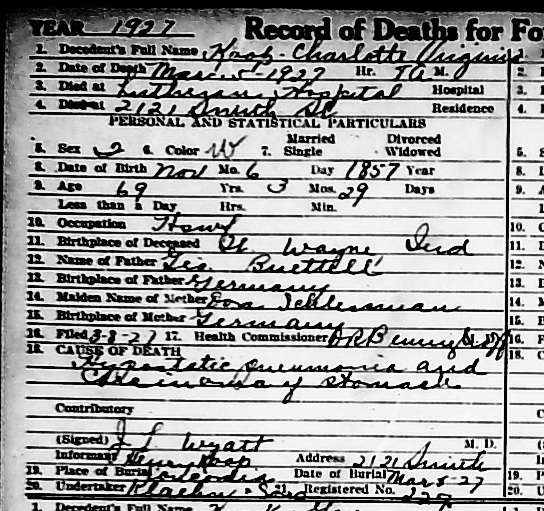 YEAR 1927 Record of Deaths for Fo
1. Decedent's Full Name Koop- Charlotte Virginia 1.
2. Date of Death Mar. 5-1927 Hr. 7 A M. 2.
3. Died at Lutheran Hospital Hospital 3.
4. Died at 2121 Smith St Residence 4.
PERSONAL AND STATISTICAL PARTICULARS
Married Divorced
5. Sex 2 6. Color W 7. Single Widowed 5.
8. Date of Birth Nov Mo. 6 Day 1857 Year 8.
9. Age 69 Yrs. 3 Mos. 29 Days 9.
Less than a Day Hrs. Min.
10. Occupation Hswf 10.
11. Birthplace of Deceased Ft. Wayne Ind 11.
12. Name of Father Geo Buettell 12.
13. Birthplace of Father Germany 13.
14. Maiden Name of Mother Schlessman 14.
15. Birthplace of Mother Germany 15.
16. Filed 3-8-27 17. Health Commissioner 16.
18. CAUSE OF DEATH 18.
Hypostatic pneumonia and
Carcinoma of stomach
Contributory
(Signed) J L Wyatt M. D.
Informant Henry Koop Address 2121 Smith
19. Place of Burial Concordia Date of Burial Mar 8-27 19.
20. Undertaker Klaehn & Sons 21. Registered No. 227 20.
1. Decedent's Full Name